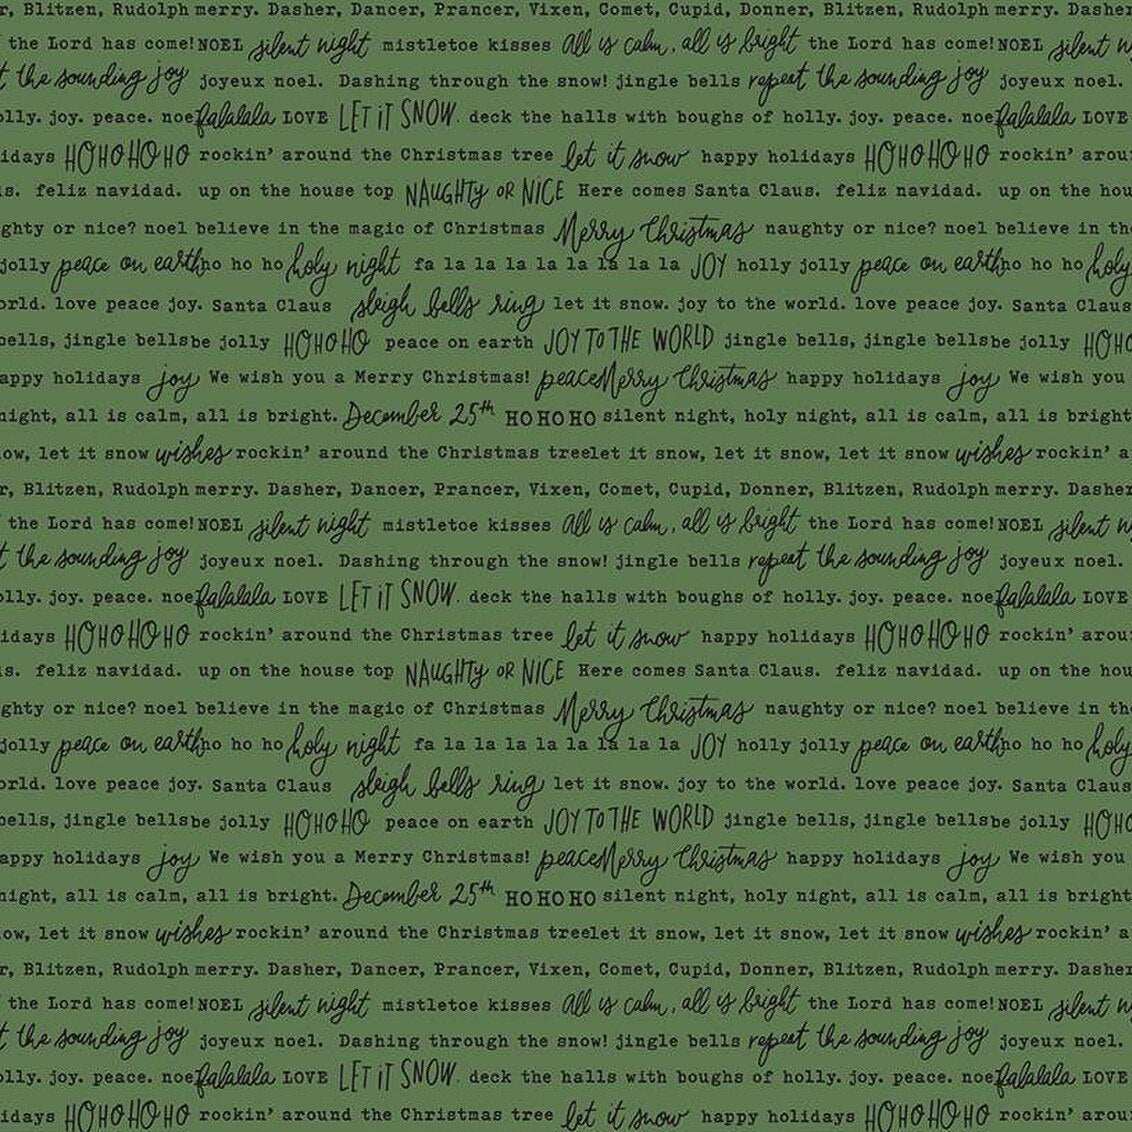 r, Blitzen, Rudolph merry. Dasher, Dancer, Prancer, Vixen, Comet, Cupid, Donner, Blitzen, Rudolph merry. Dasher
the Lord has come! NOEL silent night mistletoe kisses All is calm, all is bright the Lord has come! NOEL silent n
t the sounding joy joyeux noel. Dashing through the snow! jingle bells repeat the sounding joy joyeux noel.
olly. joy. peace. noe falalala LOVE LET iT SNOW. deck the halls with boughs of holly. joy. peace. noe falalala LOVE
idays HOHOHOHO rockin' around the Christmas tree let it snow happy holidays HOHOHOHO rockin' arou
s. feliz navidad. up on the house top NAUGHTY OR NICE Here comes Santa Claus. feliz navidad. up on the hou
ghty or nice? noel believe in the magic of Christmas Merry Christmas naughty or nice? noel believe in th
jolly peace on earth ho ho ho holy night fa la la la la la la la la JOY holly jolly peace on earth ho ho ho holy
orld. love peace joy. Santa Claus sleigh bells ring let it snow. joy to the world. love peace joy. Santa Claus
bells, jingle bells be jolly HOHOHO peace on earth JOY TO THE WORLD jingle bells, jingle bells be jolly HOHO
appy holidays joy We wish you a Merry Christmas! peace Merry Christmas happy holidays joy We wish you
night, all is calm, all is bright. December 25th HOHOHO silent night, holy night, all is calm, all is bright
ow, let it snow wishes rockin' around the Christmas tree let it snow, let it snow, let it snow wishes rockin' a
r, Blitzen, Rudolph merry. Dasher, Dancer, Prancer, Vixen, Comet, Cupid, Donner, Blitzen, Rudolph merry. Dasher
the Lord has come! NOEL silent night mistletoe kisses All is calm, all is bright the Lord has come! NOEL silent n
t the sounding joy joyeux noel. Dashing through the snow! jingle bells repeat the sounding joy joyeux noel.
olly. joy. peace. noe falalala LOVE LET iT SNOW. deck the halls with boughs of holly. joy. peace. noe falalala LOVE
idays HOHOHOHO rockin' around the Christmas tree let it snow happy holidays HOHOHOHO rockin' arou
s. feliz navidad. up on the house top NAUGHTY OR NICE Here comes Santa Claus. feliz navidad. up on the hou
ghty or nice? noel believe in the magic of Christmas Merry Christmas naughty or nice? noel believe in th
jolly peace on earth ho ho ho holy night fa la la la la la la la la JOY holly jolly peace on earth ho ho ho holy
orld. love peace joy. Santa Claus sleigh bells ring let it snow. joy to the world. love peace joy. Santa Claus
bells, jingle bells be jolly HOHOHO peace on earth JOY TO THE WORLD jingle bells, jingle bells be jolly HOHO
appy holidays joy We wish you a Merry Christmas! peace Merry Christmas happy holidays joy We wish you
night, all is calm, all is bright. December 25th HOHOHO silent night, holy night, all is calm, all is bright
ow, let it snow wishes rockin' around the Christmas tree let it snow, let it snow, let it snow wishes rockin' a
r, Blitzen, Rudolph merry. Dasher, Dancer, Prancer, Vixen, Comet, Cupid, Donner, Blitzen, Rudolph merry. Dasher
the Lord has come! NOEL silent night mistletoe kisses All is calm, all is bright the Lord has come! NOEL silent n
t the sounding joy joyeux noel. Dashing through the snow! jingle bells repeat the sounding joy joyeux noel.
olly. joy. peace. noe falalala LOVE LET iT SNOW. deck the halls with boughs of holly. joy. peace. noe falalala LOVE
idays HOHOHOHO rockin' around the Christmas tree let it snow happy holidays HOHOHOHO rockin' arou